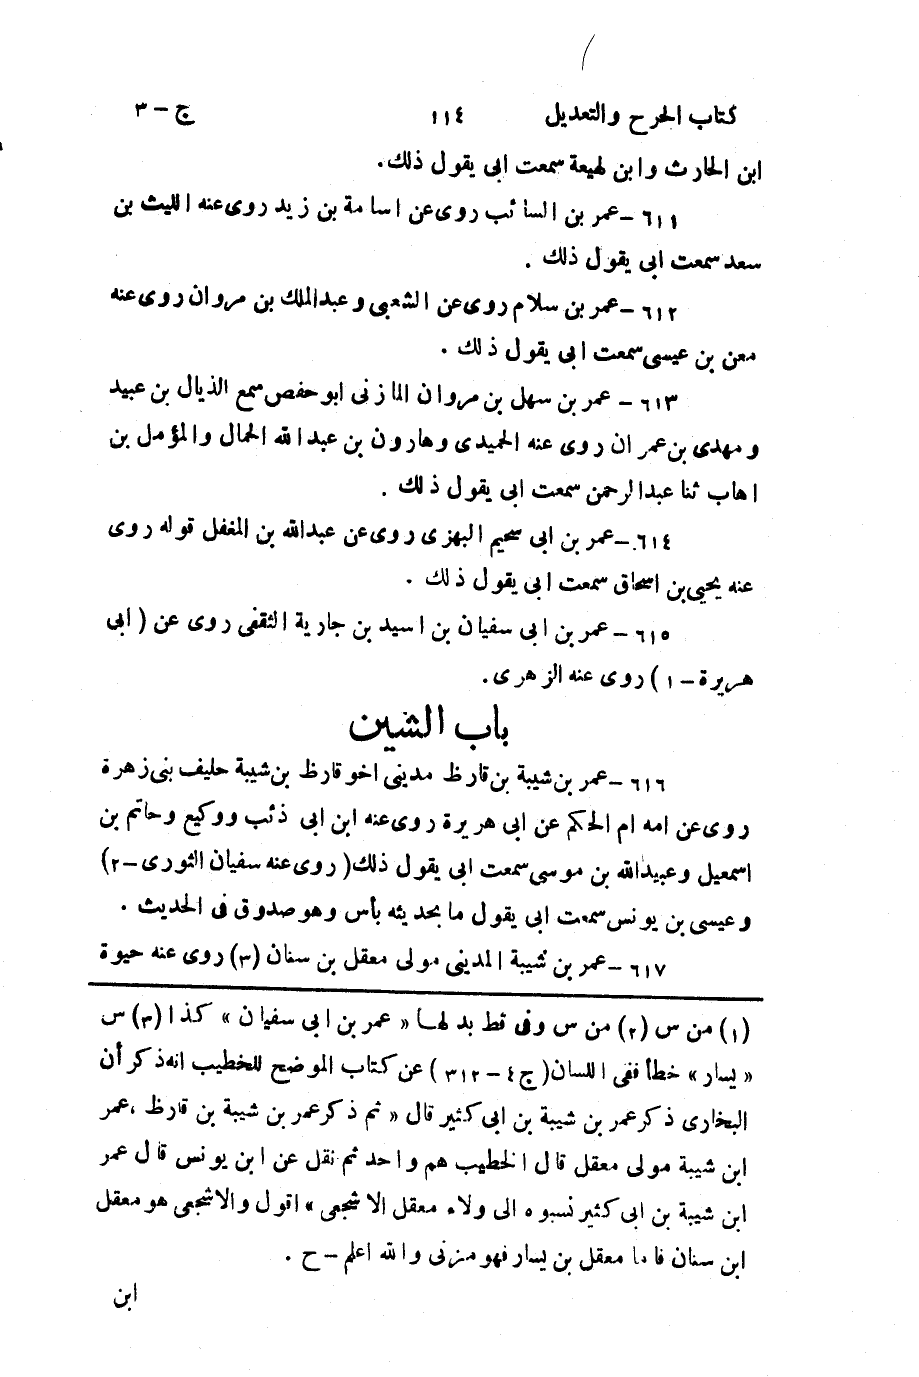 كتاب الجرح والتعديل ١١٤ ج - ٣
ابن الحارث وابن لهيعة سمعت ابى يقول ذلك.
٦١١ - عمر بن السائب روى عن اسامة بن زيد روى عنه الليث بن
سعد سمعت ابى يقول ذلك .
٦١٢ - عمر بن سلام روى عن الشعبى وعبدالملك بن مروان روى عنه
معن بن عيسى سمعت ابى يقول ذلك .
٦١٣ - عمر بن سهل بن مروان المازنى ابو حفص سمع الذيال بن عبيد
ومهدى بن عمران روى عنه الحميدى وهارون بن عبدالله الحمال والمؤمل بن
اهاب ثنا عبدالرحمن سمعت ابى يقول ذلك .
٦١٤ - عمر بن ابى سحيم البهزى روى عن عبدالله بن المغفل قوله روى
عنه يحيى بن اسحاق سمعت ابى يقول ذلك .
٦١٥ - عمر بن ابى سفيان بن اسيد بن جارية الثقفى روى عن ( ابى
هريرة - ١ ) روى عنه الزهرى .
باب الشين
٦١٦ - عمر بن شيبة بن قارظ مدينى اخو قارظ بن شيبة حليف بنى زهرة
روى عن امه ام الحكم عن ابى هريرة روى عنه ابن ابى ذئب ووكيع وحاتم بن
اسمعيل وعبيدالله بن موسى سمعت ابى يقول ذلك ( روى عنه سفيان الثورى - ٢)
وعيسى بن يونس سمعت ابى يقول ما بحديثه بأس وهو صدوق فى الحديث .
٦١٧ - عمر بن شيبة المدينى مولى معقل بن سنان (٣) روى عنه حيوة
(١) من س (٢) من س وفى قط بدلها « عمر بن ابى سفيان » كذا (٣) س
« يسار » خطأ ففى اللسان ( ج ٤ - ٣١٢ ) عن كتاب الموضح للخطيب انه ذكر أن
البخارى ذكر عمر بن شيبة بن ابى كثير قال « ثم ذكر عمر بن شيبة بن قارظ ، عمر
ابن شيبة مولى معقل قال الخطيب هم واحد ثم نقل عن ابن يونس قال عمر
ابن شيبة بن ابى كثير نسبوه الى ولاء معقل الاشجعى » اقول والاشجعى هو معقل
ابن سنان فاما معقل بن يسار فهو مزنى والله اعلم - ح .
ابن